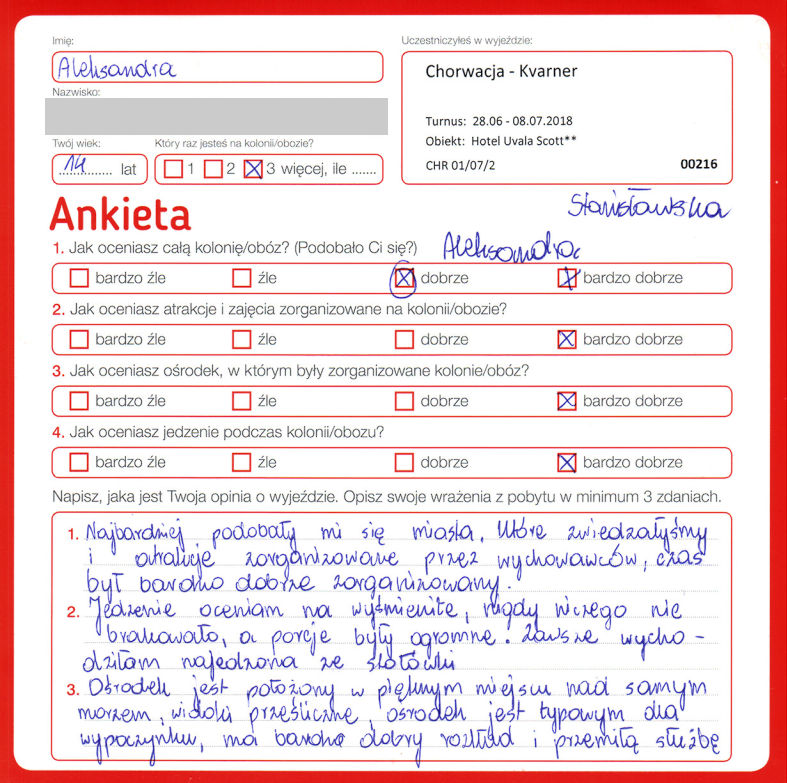 Imię:
Uczestniczyłeś w wyjeździe:
Aleksandra
Chorwacja - Kvarner
Nazwisko:
Turnus: 28.06 - 08.07.2018
Obiekt: Hotel Uvala Scott**
CHR 01/07/2 00216
Twój wiek: Który raz jesteś na kolonii/obozie?
14 lat 1 2 3 więcej, ile .......
Stanisławska
Ankieta
1. Jak oceniasz całą kolonię/obóz? (Podobało Ci się?) Aleksandra
bardzo źle źle dobrze bardzo dobrze
2. Jak oceniasz atrakcje i zajęcia zorganizowane na kolonii/obozie?
bardzo źle źle dobrze bardzo dobrze
3. Jak oceniasz ośrodek, w którym były zorganizowane kolonie/obóz?
bardzo źle źle dobrze bardzo dobrze
4. Jak oceniasz jedzenie podczas kolonii/obozu?
bardzo źle źle dobrze bardzo dobrze
Napisz, jaka jest Twoja opinia o wyjeździe. Opisz swoje wrażenia z pobytu w minimum 3 zdaniach.
1. Najbardziej podobały mi się miasta, które zwiedzałyśmy
i atrakcje zorganizowane przez wychowawców, czas
był bardzo dobrze zorganizowany.
2. Jedzenie oceniam na wyśmienite, nigdy niczego nie
brakowało, a porcje były ogromne. Zawsze wycho-
dziłam najedzona ze stołówki
3. Ośrodek jest położony w pięknym miejscu nad samym
morzem, widoki prześliczne, ośrodek jest typowym dla
wypoczynku, ma bardzo dobry rozkład i przemiłą służbę